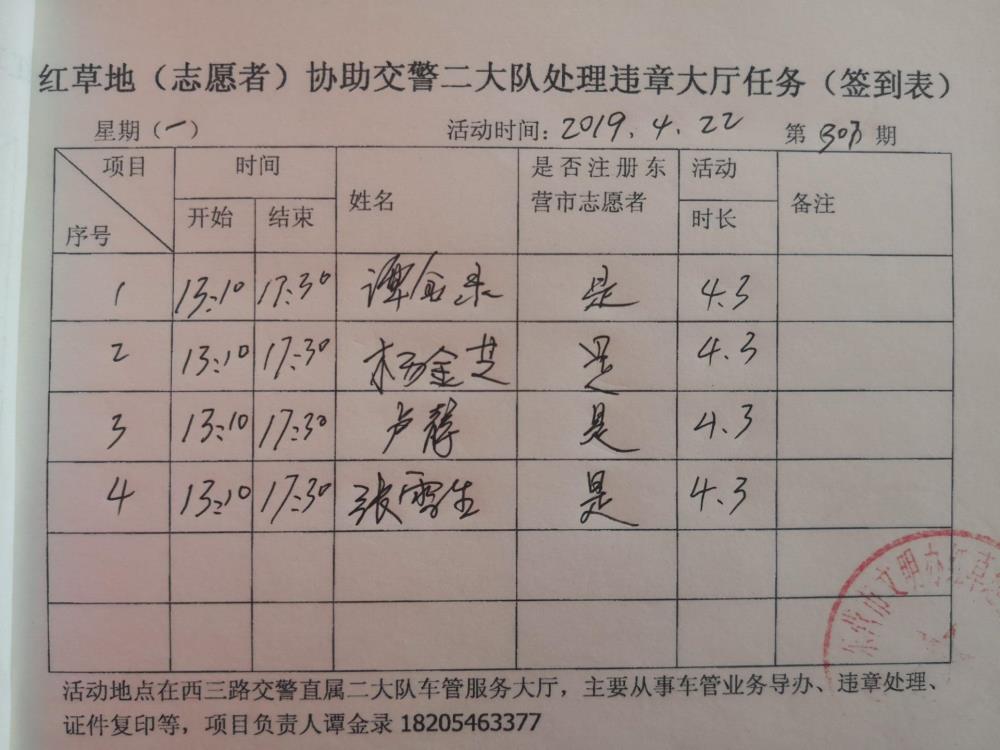 红草地（志愿者）协助交警二大队处理违章大厅任务（签到表）
星期（一） 活动时间：2019.4.22 第307期
项目 时间 姓名 是否注册东营市志愿者 活动 备注
序号 开始 结束 时长
1 13:10 17:30 谭金录 是 4.3
2 13:10 17:30 杨金芝 是 4.3
3 13:10 17:30 卢静 是 4.3
4 13:10 17:30 张雪生 是 4.3
东营市文明办红草
活动地点在西三路交警直属二大队车管服务大厅，主要从事车管业务导办、违章处理、
证件复印等，项目负责人谭金录 18205463377